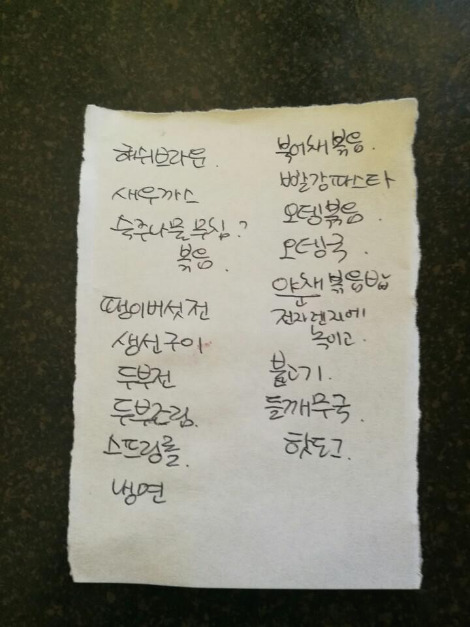 해쉬브라운.
새우까스
숙주나물 무침?
볶음.
팽이버섯전
생선구이
두부전
두부조림.
스프링롤.
냉면
북어채볶음.
빨강파스타
오뎅볶음.
오뎅국.
야채볶음밥
전자렌지에
녹이고.
불고기.
들깨무국.
핫도그.